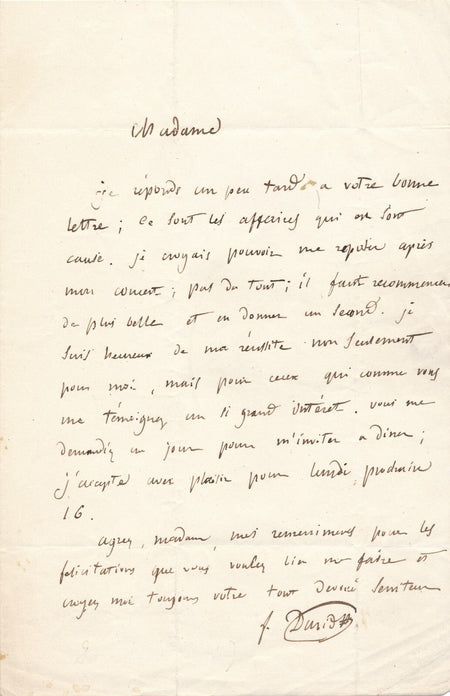 Madame
je réponds un peu tard a votre bonne
lettre ; ce sont les affaires qui en sont
cause. je croyais pouvoir me reposer après
mon concert ; pas du tout ; il faut recommencer
de plus belle et en donner un second. je
suis heureux de ma réussite non seulement
pour moi, mais pour ceux qui comme vous
me témoignez un si grand intéret. vous me
demandez un jour pour m'inviter a diner ;
j'accepte avec plaisir pour lundi prochain
16.
agreez, madame, mes remerciments pour les
felicitations que vous voulez bien me faire et
croyez moi toujours votre tout devoué serviteur
f. David